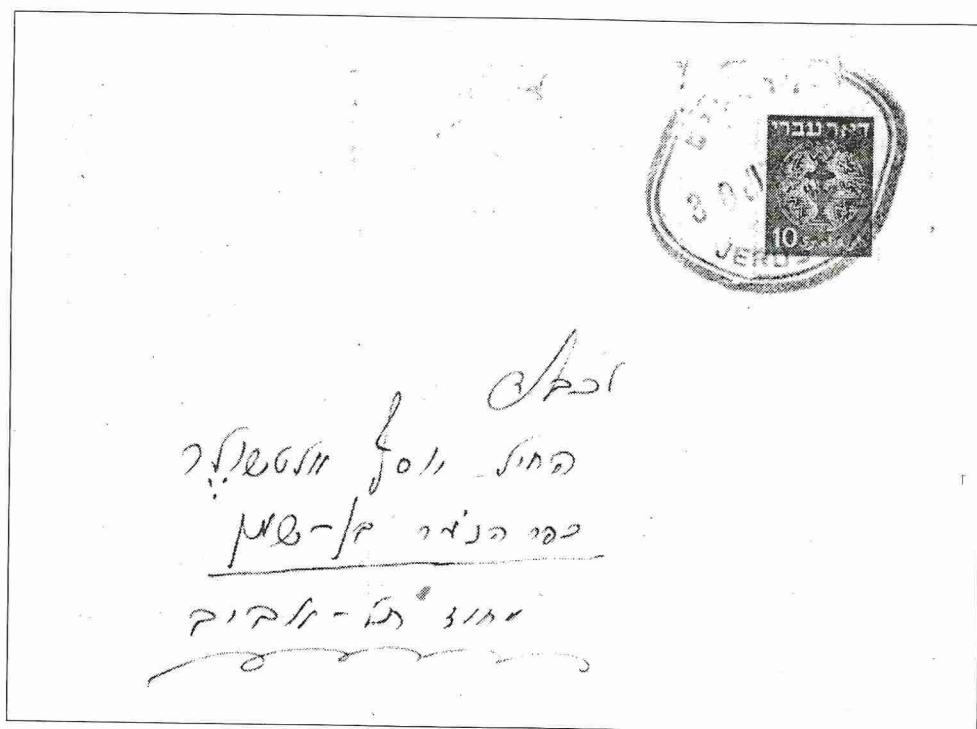 דואר עברי
10
JERUS
לכבוד
החיל יוסף אלטשולר
כפר הנוער בן-שמן
מחוז תל-אביב